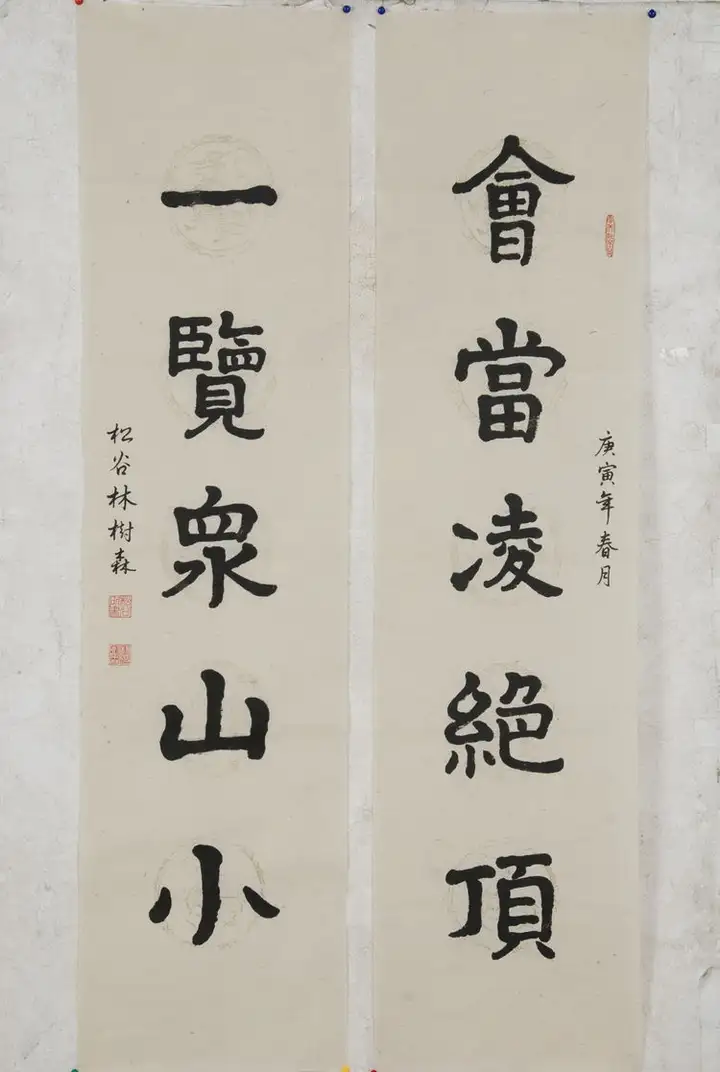 會當凌絕頂
庚寅年春月
一覽眾山小
松谷林樹森